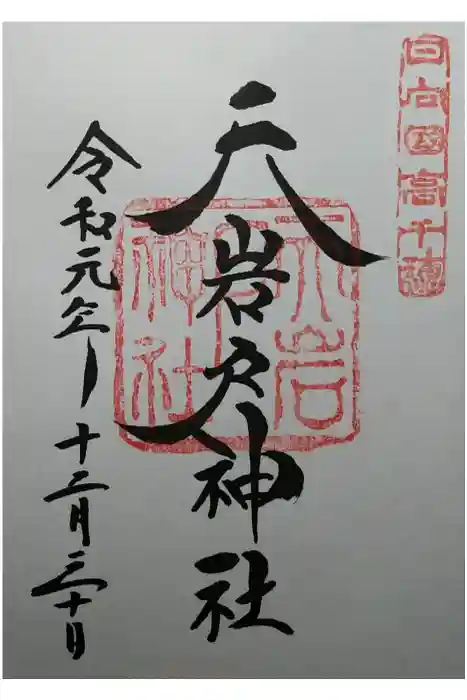 日向国高千穂
天岩戸神社
天岩戸神社
令和元年十二月三十日